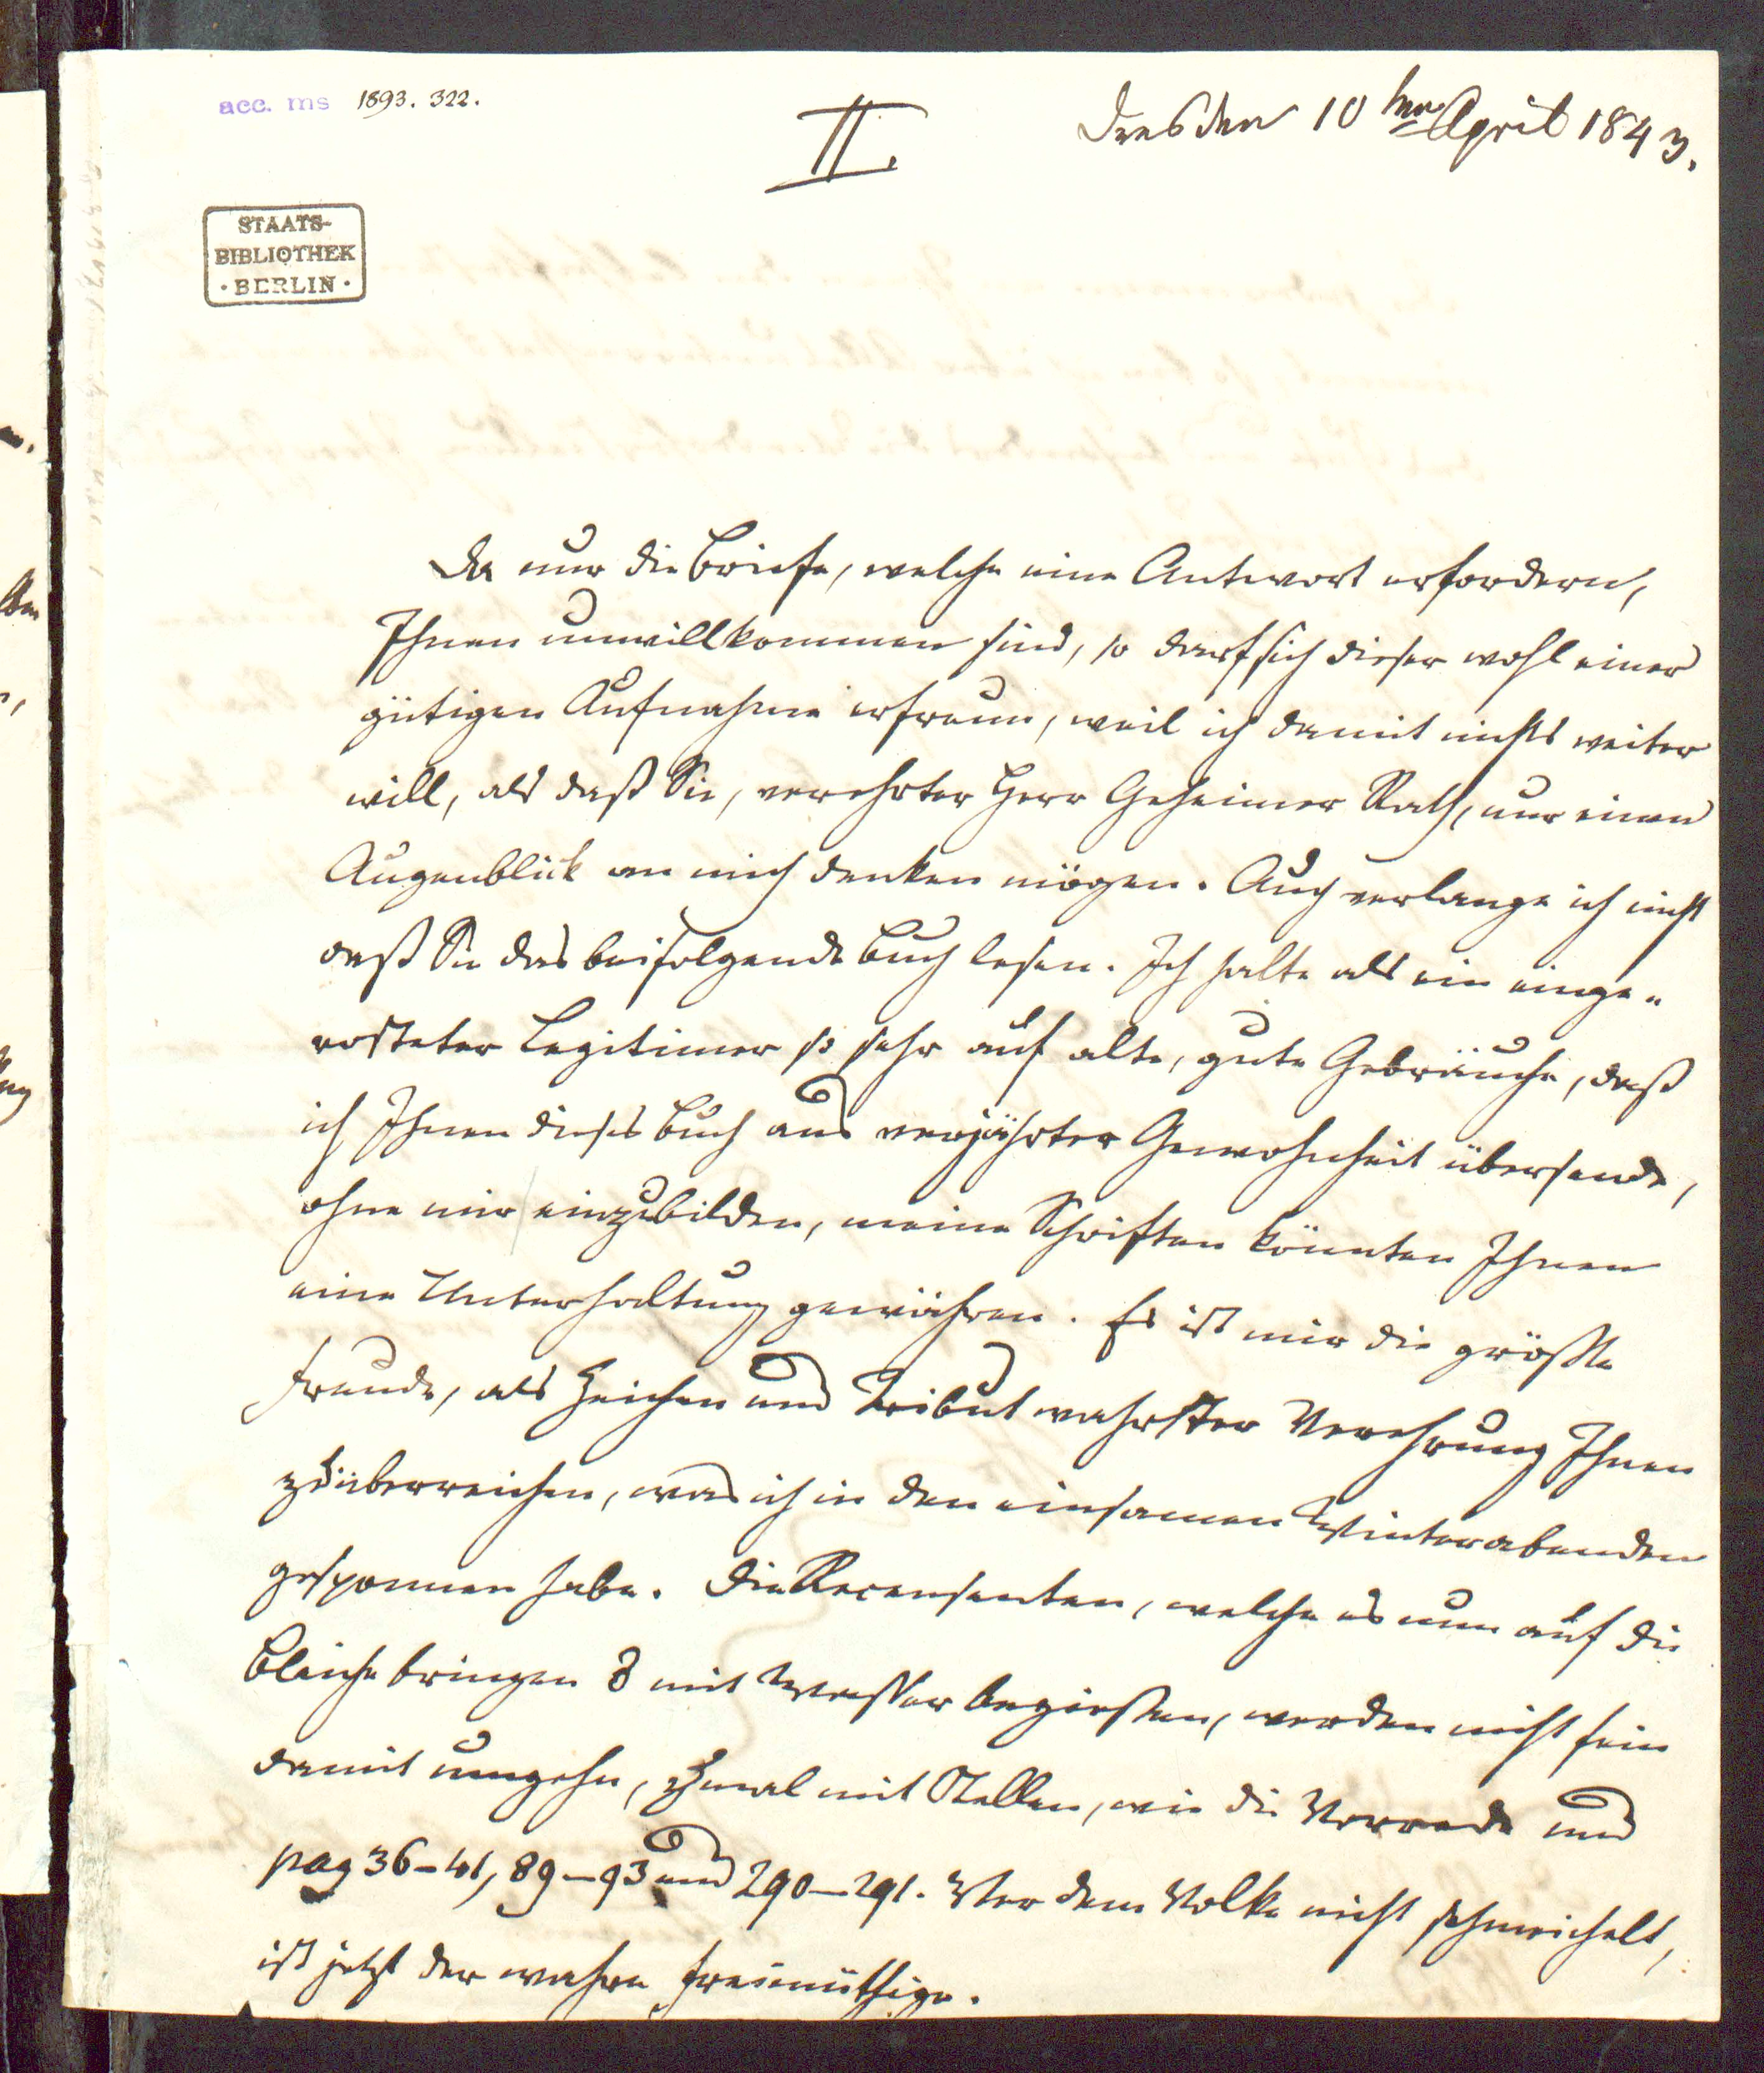 acc. ms 1893. 322.
II.
Dresden 10ten April 1843.
STAATS-
BIBLIOTHEK
· BERLIN ·
Da nur die Briefe, welche eine Antwort erfordern,
Ihnen unwillkommen sind, so darf sich dieser wohl einer
gütigen Aufnahme erfreun, weil ich damit nichts weiter
will, als daß Sie, verehrter Herr Geheimer Rath, nur einen
Augenblick an mich denken mögen. Auch verlange ich nicht
daß Sie das beifolgende Buch lesen. Ich halte als ein einge-
rosteter Legitimer so sehr auf alte, gute Gebräuche, daß
ich Ihnen dieses Buch aus verjährter Gewohnheit übersende,
ohne mir einzubilden, meine Schriften könnten Ihnen
eine Unterhaltung gewähren. Es ist mir die größte
Freude, als Zeichen und Tribut wahrster Verehrung Ihnen
zu überreichen, was ich in den einsamen Winterabenden
gesponnen habe. Die Recensenten, welche es nun auf die
Bleiche bringen & mit Wasser begießen, werden nicht fein
damit umgehn, zumal mit Stellen, wie die Vorrede und
pag 36-41, 89-93 und 290-291. Wer dem Volke nicht schmeichelt,
ist jetzt der wahre Freimüthige.